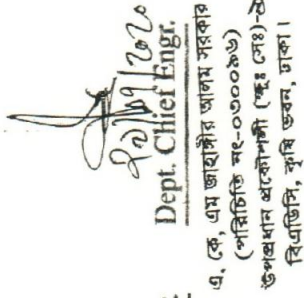 ২১/০৭/২০২০
Dept. Chief Engr.
এ, কে, এম জাহাঙ্গীর আলম সরকার
(পরিচিতি নং-০৭০০৯৬)
উপপ্রধান প্রকৌশলী (ক্ষুঃ সেঃ)-
বিএডিসি, কৃষি ভবন, ঢাকা।